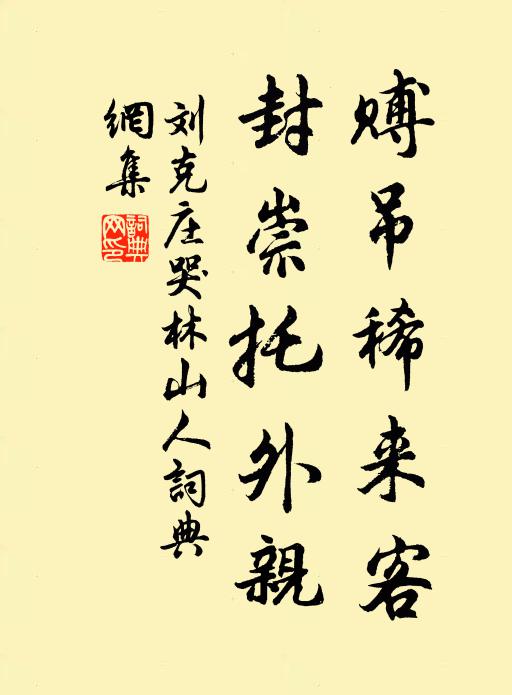 赙吊稀来客
封崇托外親
刘克庄哭林山人詞典
網集
詞典
网印